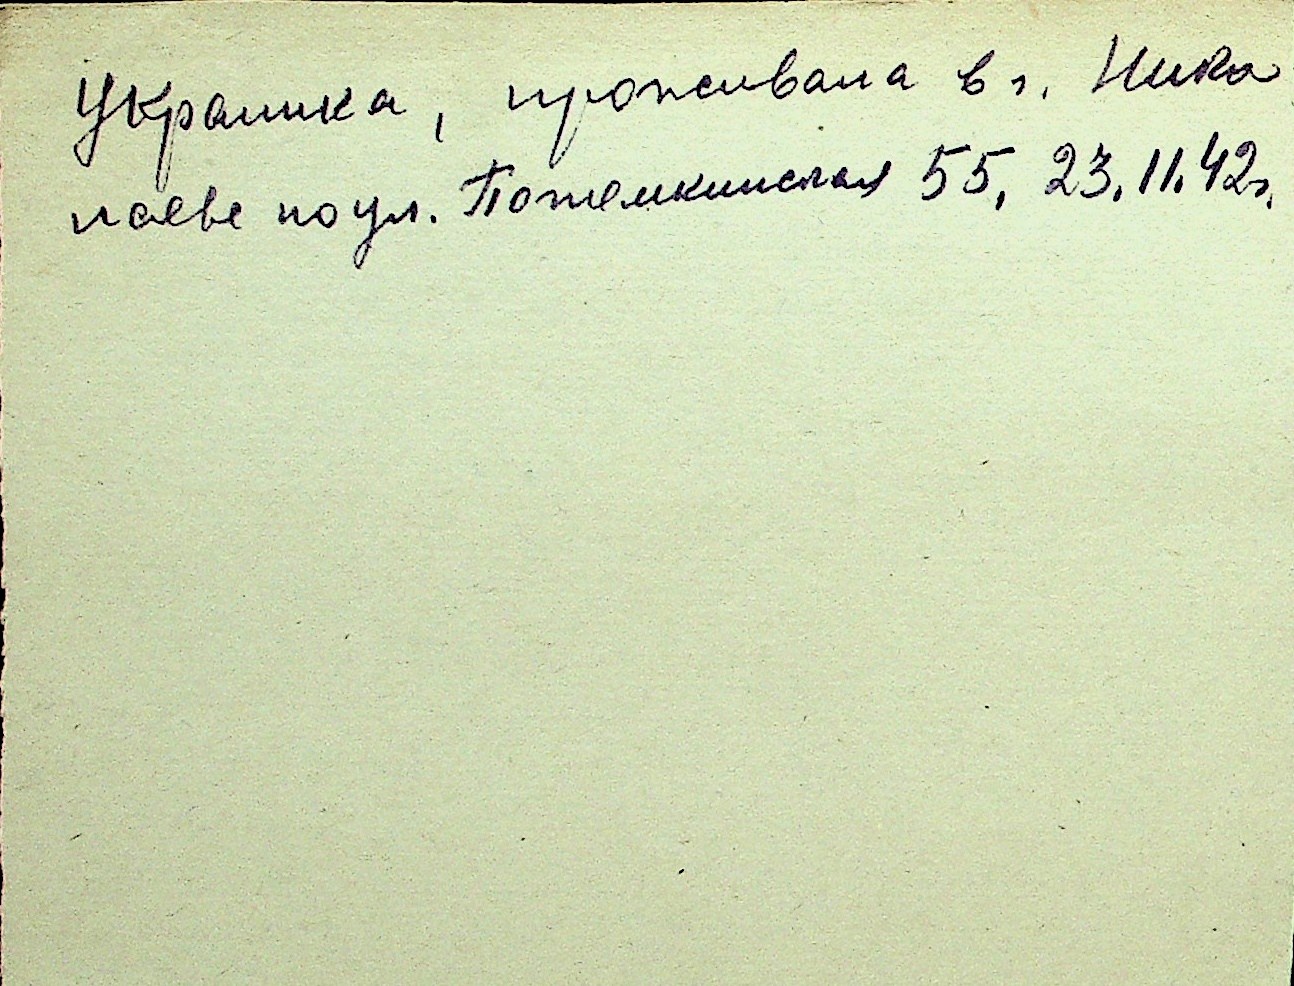 Украинка, проживала в г. Нико
лаеве по ул. Потемкинская 55, 23.11.42г.